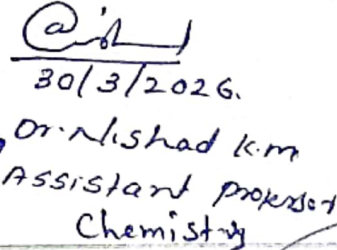 30/3/2026.
Dr. Nishad K.M
Assistant Professor
Chemistry